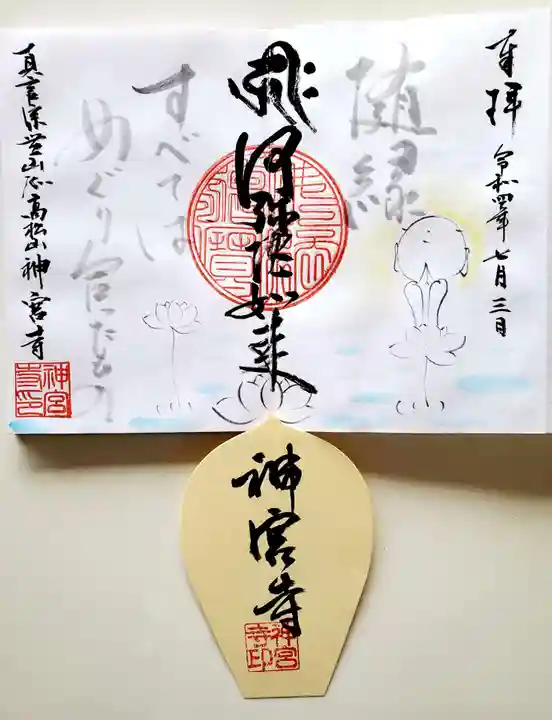 奉拝
令和四年七月三日
随縁
阿弥陀如来
すべては
めぐり合ったもの
真言宗豊山派高松山神宮寺
神宮寺印
神宮寺
神宮寺印